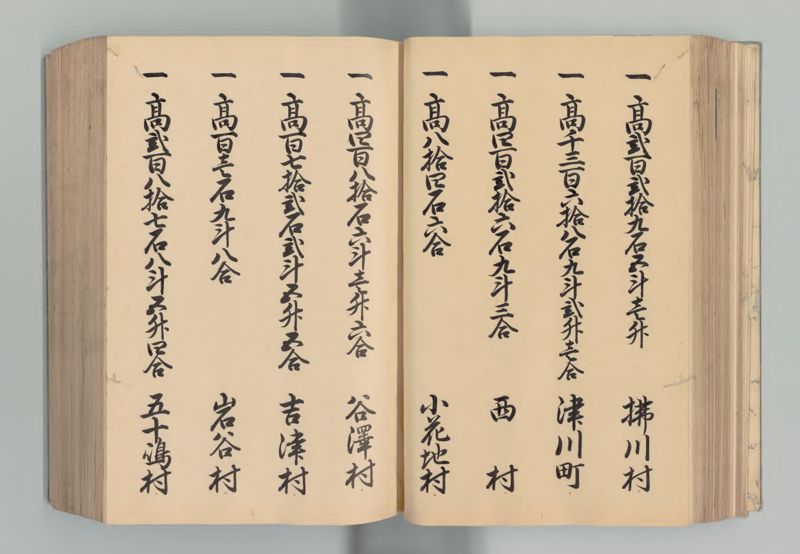 一 高弐百弐拾九石五斗壱升 拂川村
一 高千三百六拾八石九斗弐升壱合 津川町
一 高四百弐拾六石九斗三合 西村
一 高八拾四石六合 小花地村
一 高四百八拾石六斗壱升六合 谷澤村
一 高百七拾弐石弐斗五升五合 吉津村
一 高百壱石九斗八合 岩谷村
一 高弐百八拾七石八斗五升四合 五十嶋村